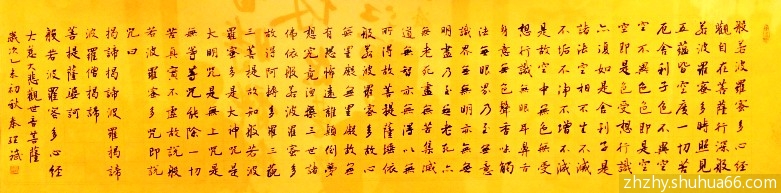 般若波羅蜜多心經
觀自在菩薩行深般
若波羅蜜多時照見
五蘊皆空度一切苦
厄舍利子色不異空
空不異色色即是空
空即是色受想行識
亦復如是舍利子是
諸法空相不生不滅
不垢不淨不增不減
是故空中無色無受
想行識無眼耳鼻舌
身意無色聲香味觸
法無眼界乃至無意
識界無無明亦無無
明盡乃至無老死亦
無老死盡無苦集滅
道無智亦無得以無
所得故菩提薩埵依
般若波羅蜜多故心
無罣礙無罣礙故無
有恐怖遠離顛倒夢
想究竟涅槃三世諸
佛依般若波羅蜜多
故得阿耨多羅三藐
三菩提故知般若波
羅蜜多是大神咒是
大明咒是無上咒是
無等等咒能除一切
苦真實不虛故說般
若波羅蜜多咒即說
咒曰
揭諦揭諦波羅揭諦
波羅僧揭諦
菩提薩婆訶
般若波羅蜜多心經
大慈大悲觀世音菩薩
歲次乙未初秋秦理斌
zhzhy.shuhua66.com